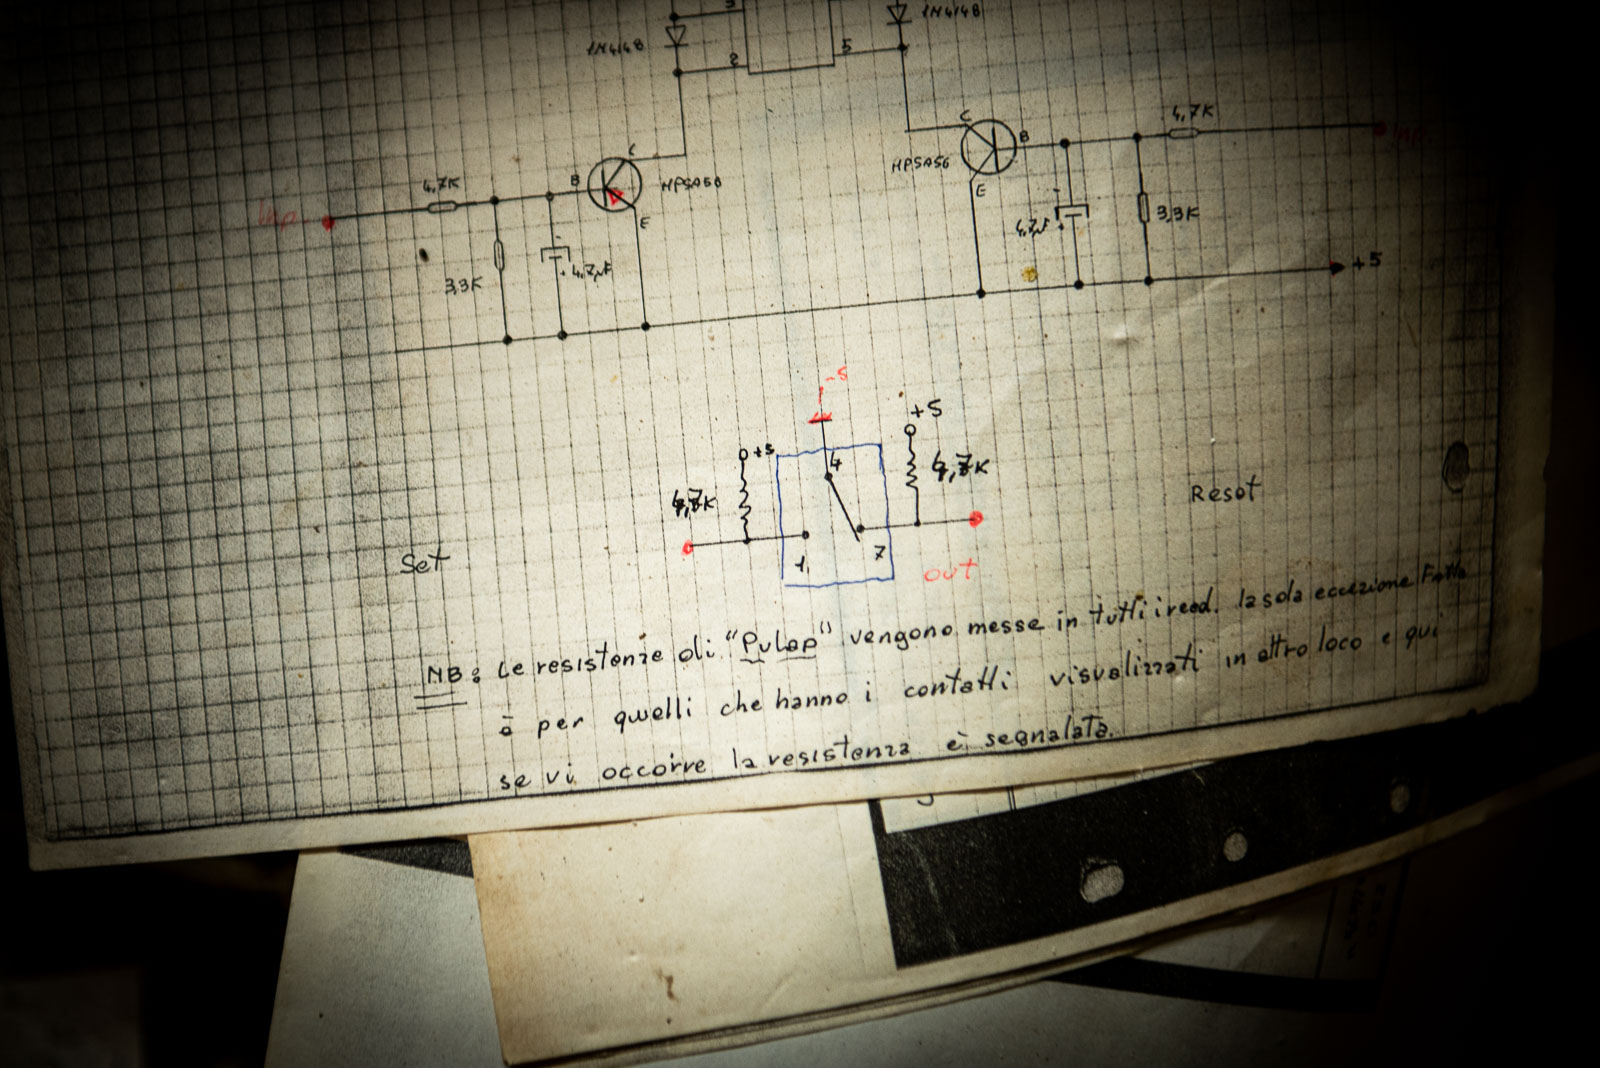 3
1N4148
1N4148
2
5
C
4,7K
B
MPSA56
E
C
4,7K
B
E
Inp
4,7µF
3,3K
3,3K
4,7µF
+5
-5
+5
+5
4
4,7K
4,7K
Reset
Set
1
7
out
NB: Le resistenze di "Pulap" vengono messe in tutti i reed. la sola eccezione Fatta
è per quelli che hanno i contatti visualizzati in altro loco e qui
se vi occorre la resistenza è segnalata.